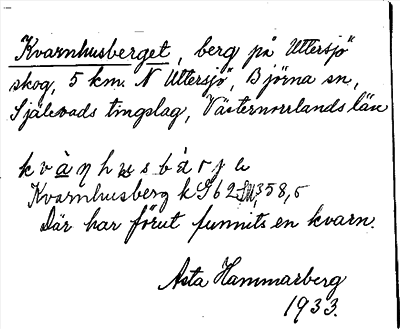 Kvarnhusberget, berg på Uttersjö
skog, 5 km. N Uttersjö, Björna sn,
Själevads tingslag, Västernorrlands län
Kvarnhusberg k G 62 358,5
Där har förut funnits en kvarn.
Asta Hammarberg
1933.